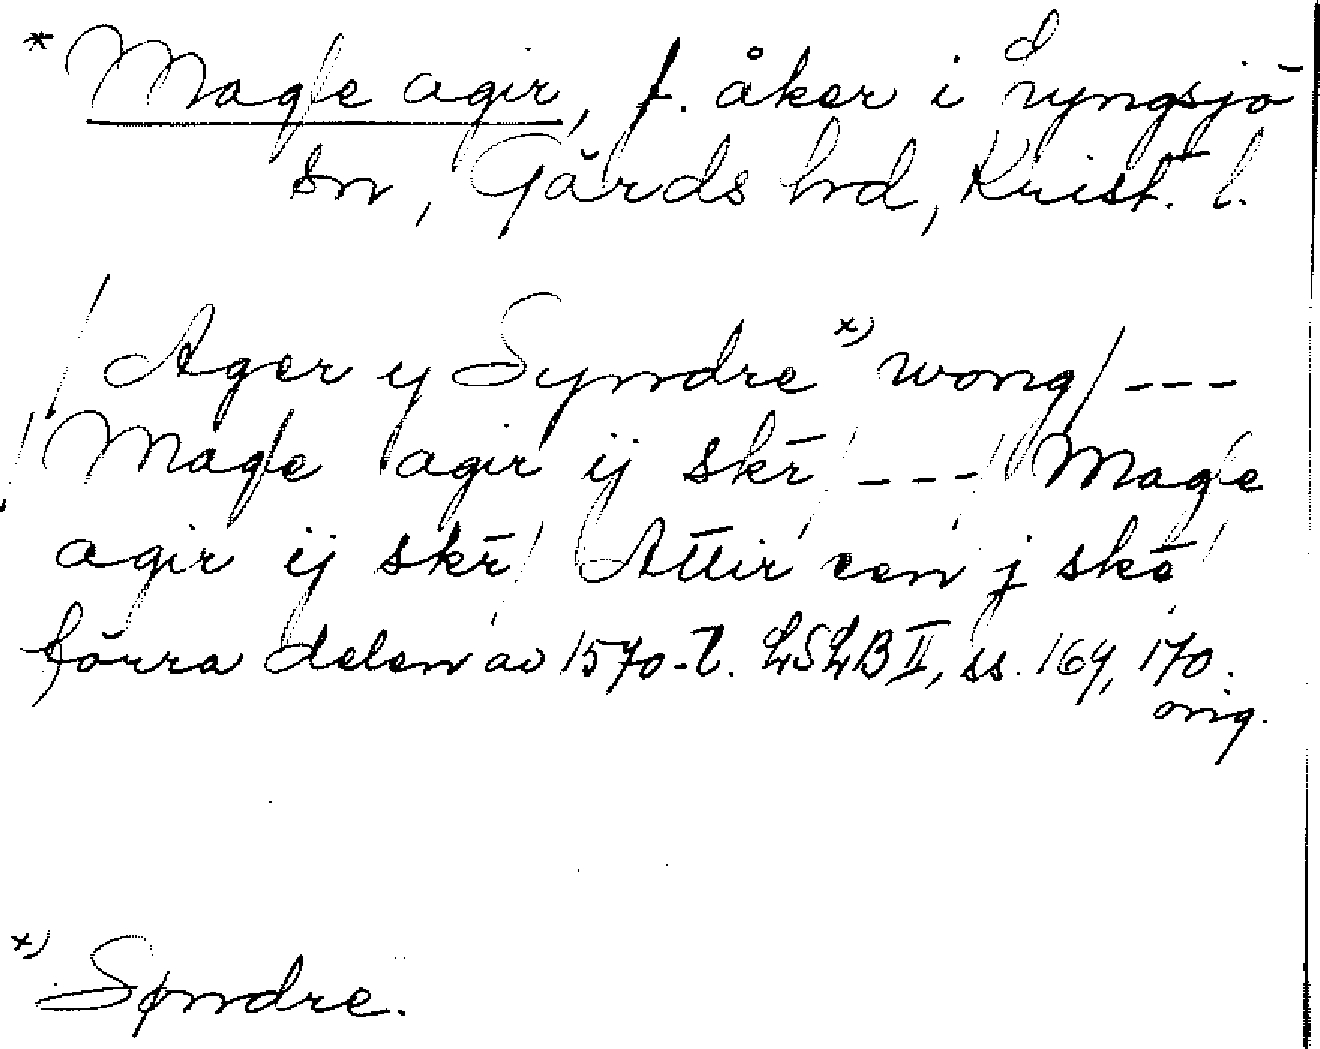 * Magle agir, f. åker i Lyngsjö
sn, Gärds hd, Krist. l.
/Ager y Syndre x) wong/ ---
/Magle agir ij skr̄/ ---/ Magle
agir ij skr̄/ Attir een j skē/
förra delen av 1570-t. LSLB II, ss. 169, 170.
orig.
x) Syndre.